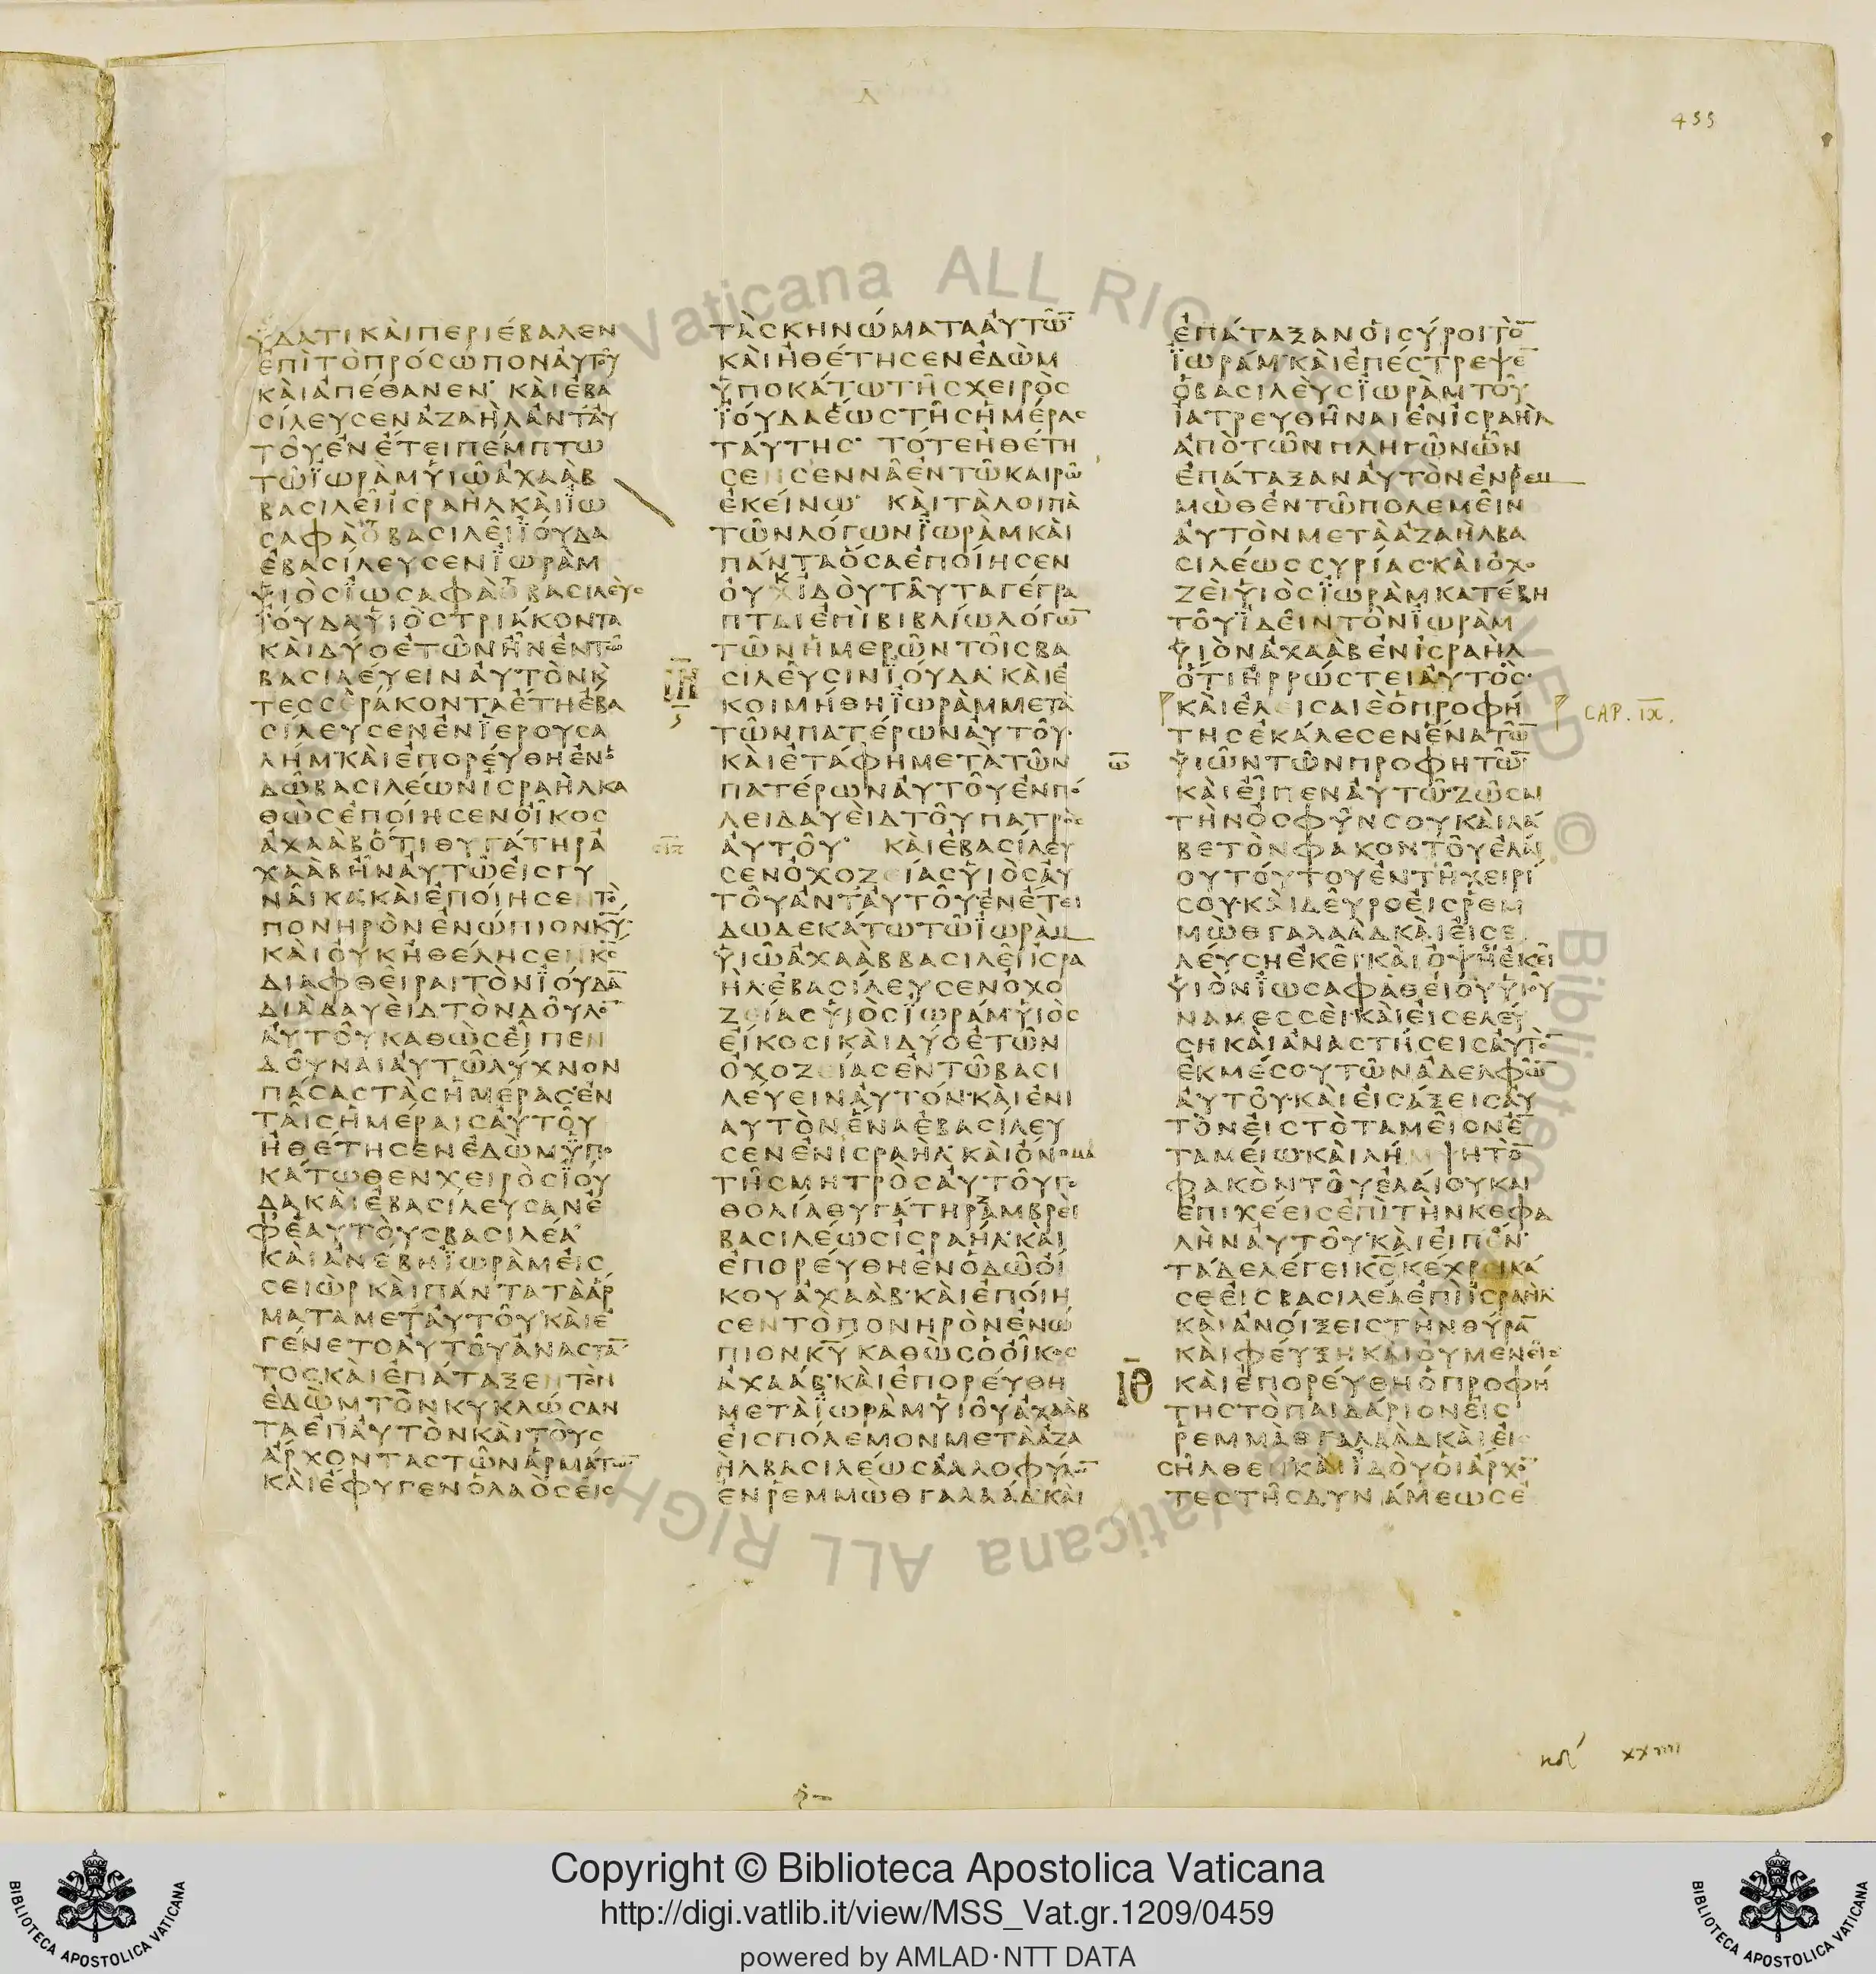 455
ΥΔΑΤΙΚΑΙΠΕΡΙΕΒΑΛΕΝ
ΕΠΙΤΟΠΡΟΣΩΠΟΝΑΥΤΟΥ
ΚΑΙΑΠΕΘΑΝΕΝ· ΚΑΙΕΒΑ
ΣΙΛΕΥΣΕΝΑΖΑΗΛΑΝΤΑΥ
ΤΟΥΕΝΕΤΕΙΠΕΜΠΤΩ
ΤΩΪΩΡΑΜΥΙΩΑΧΑΑΒ
ΒΑΣΙΛΕΙΙΣΡΑΗΛΚΑΙΪΩ
ΣΑΦΑΘΒΑΣΙΛΕΙΪΟΥΔΑ
ΕΒΑΣΙΛΕΥΣΕΝΪΩΡΑΜ
ΥΙΟΣΪΩΣΑΦΑΘΒΑΣΙΛΕΥΣ
ΪΟΥΔΑΥΙΟΣΤΡΙΑΚΟΝΤΑ
ΚΑΙΔΥΟΕΤΩΝΗΝΕΝΤΩ
ΒΑΣΙΛΕΥΕΙΝΑΥΤΟΝΚ̅
ΤΕΣΣΕΡΑΚΟΝΤΑΕΤΗΕΒΑ
ΣΙΛΕΥΣΕΝΕΝΪΕΡΟΥΣΑ
ΛΗΜ·ΚΑΙΕΠΟΡΕΥΘΗΕΝΟ
ΔΩΒΑΣΙΛΕΩΝΙΣΡΑΗΛΚΑ
ΘΩΣΕΠΟΙΗΣΕΝΟΙΚΟΣ
ΑΧΑΑΒΟΤΙΘΥΓΑΤΗΡΑ
ΧΑΑΒΗΝΑΥΤΩΕΙΣΓΥ
ΝΑΙΚΑ·ΚΑΙΕΠΟΙΗΣΕΝΤΟ
ΠΟΝΗΡΟΝΕΝΩΠΙΟΝΚ̅Υ̅·
ΚΑΙΟΥΚΗΘΕΛΗΣΕΝΚ̅Σ̅
ΔΙΑΦΘΕΙΡΑΙΤΟΝΪΟΥΔΑ̅
ΔΙΑΔΑΥΕΙΔΤΟΝΔΟΥΛΟ̅
ΑΥΤΟΥΚΑΘΩΣΕΙΠΕΝ
ΔΟΥΝΑΙΑΥΤΩΛΥΧΝΟΝ
ΠΑΣΑΣΤΑΣΗΜΕΡΑΣ·ΕΝ
ΤΑΙΣΗΜΕΡΑΙΣΑΥΤΟΥ
ΗΘΕΤΗΣΕΝΕΔΩΜΫΠΟ
ΚΑΤΩΘΕΝΧΕΙΡΟΣΪΟΥ
ΔΑΚΑΙΕΒΑΣΙΛΕΥΣΑΝΕ
ΦΕΑΥΤΟΥΣΒΑΣΙΛΕΑ·
ΚΑΙΑΝΕΒΗΪΩΡΑΜΕΙΣ
ΣΕΙΩΡΚΑΙΠΑΝΤΑΤΑΑΡ
ΜΑΤΑΜΕΤΑΥΤΟΥ·ΚΑΙΕ
ΓΕΝΕΤΟΑΥΤΟΥΑΝΑΣΤΑ̅
ΤΟΣΚΑΙΕΠΑΤΑΞΕΝΤΟΝ
ΕΔΩΜΤΟΝΚΥΚΛΩΣΑΝ
ΤΑΕΠΑΥΤΟΝΚΑΙΤΟΥΣ
ΑΡΧΟΝΤΑΣΤΩΝΑΡΜΑΤΩ̅
ΚΑΙΕΦΥΓΕΝΟΛΑΟΣΕΙΣ
ΤΑΣΚΗΝΩΜΑΤΑΑΥΤΩ̅·
ΚΑΙΗΘΕΤΗΣΕΝΕΔΩΜ
ΥΠΟΚΑΤΩΤΗΣΧΕΙΡΟΣ
ΪΟΥΔΑΕΩΣΤΗΣΗΜΕΡΑΣ
ΤΑΥΤΗΣ· ΤΟΤΕΗΘΕΤΗ
ΣΕΝΣΕΝΝΑΕΝΤΩΚΑΙΡΩ
ΕΚΕΙΝΩ· ΚΑΙΤΑΛΟΙΠΑ
ΤΩΝΛΟΓΩΝΪΩΡΑΜΚΑΙ
ΠΑΝΤΑΟΣΑΕΠΟΙΗΣΕΝ
ΟΥΧΙΔΟΥΤΑΥΤΑΓΕΓΡΑ
ΠΤΑΙΕΠΙΒΙΒΛΙΩΛΟΓΩ̅
ΤΩΝΗΜΕΡΩΝΤΟΙΣΒΑ
ΣΙΛΕΥΣΙΝΪΟΥΔΑ·ΚΑΙΕ
ΚΟΙΜΗΘΗΪΩΡΑΜΜΕΤΑ
ΤΩΝΠΑΤΕΡΩΝΑΥΤΟΥ·
ΚΑΙΕΤΑΦΗΜΕΤΑΤΩΝ
ΠΑΤΕΡΩΝΑΥΤΟΥΕΝΠΟ
ΛΕΙΔΑΥΕΙΔΤΟΥΠΑΤΡΟΣ
ΑΥΤΟΥ· ΚΑΙΕΒΑΣΙΛΕΥ
ΣΕΝΟΧΟΖΕΙΑΣΥΙΟΣΑΥ
ΤΟΥΑΝΤΑΥΤΟΥ·ΕΝΕΤΕΙ
ΔΩΔΕΚΑΤΩΤΩΪΩΡΑΜ
ΥΙΩΑΧΑΑΒΒΑΣΙΛΕΙΙΣΡΑ
ΗΛ·ΕΒΑΣΙΛΕΥΣΕΝΟΧΟ
ΖΕΙΑΣΥΙΟΣΪΩΡΑΜ·ΥΙΟΣ
ΕΙΚΟΣΙΚΑΙΔΥΟΕΤΩΝ
ΟΧΟΖΕΙΑΣΕΝΤΩΒΑΣΙ
ΛΕΥΕΙΝΑΥΤΟΝ·ΚΑΙΕΝΙ
ΑΥΤΟΝΕΝΑΕΒΑΣΙΛΕΥ
ΣΕΝΕΝΙΣΡΑΗΛ·ΚΑΙΟΝΟΜΑ
ΤΗΣΜΗΤΡΟΣΑΥΤΟΥΓΟ
ΘΟΛΙΑΘΥΓΑΤΗΡΑΜΒΡΕΙ
ΒΑΣΙΛΕΩΣΙΣΡΑΗΛ·ΚΑΙ
ΕΠΟΡΕΥΘΗΕΝΟΔΩΟΙ
ΚΟΥΑΧΑΑΒ·ΚΑΙΕΠΟΙΗ
ΣΕΝΤΟΠΟΝΗΡΟΝΕΝΩ
ΠΙΟΝΚ̅Υ̅ΚΑΘΩΣΟΟΙΚΟΣ
ΑΧΑΑΒ·ΚΑΙΕΠΟΡΕΥΘΗ
ΜΕΤΑΪΩΡΑΜΥΙΟΥΑΧΑΑΒ
ΕΙΣΠΟΛΕΜΟΝΜΕΤΑΑΖΑ
ΗΛΒΑΣΙΛΕΩΣΑΛΛΟΦΥΛΩ̅
ΕΝΡΕΜΜΩΘΓΑΛΑΑΔ·ΚΑΙ
ΕΠΑΤΑΞΑΝΟΙΣΥΡΟΙΤΟ̅
ΪΩΡΑΜ·ΚΑΙΕΠΕΣΤΡΕΨΕ̅
ΟΒΑΣΙΛΕΥΣΪΩΡΑΜΤΟΥ
ΙΑΤΡΕΥΘΗΝΑΙΕΝΙΣΡΑΗΛ
ΑΠΟΤΩΝΠΛΗΓΩΝΩΝ
ΕΠΑΤΑΞΑΝΑΥΤΟΝΕΝΡΕΜ
ΜΩΘΕΝΤΩΠΟΛΕΜΕΙΝ
ΑΥΤΟΝΜΕΤΑΑΖΑΗΛΒΑ
ΣΙΛΕΩΣΣΥΡΙΑΣ·ΚΑΙΟΧΟ
ΖΕΙΥΙΟΣΪΩΡΑΜΚΑΤΕΒΗ
ΤΟΥΪΔΕΙΝΤΟΝΪΩΡΑΜ
ΥΙΟΝΑΧΑΑΒΕΝΙΣΡΑΗΛ
ΟΤΙΗΡΡΩΣΤΕΙΑΥΤΟΣ·
ΚΑΙΕΛΕΙΣΑΙΕΟΠΡΟΦΗ CAP. IX.
ΤΗΣΕΚΑΛΕΣΕΝΕΝΑΤΩ̅
ΥΙΩΝΤΩΝΠΡΟΦΗΤΩ̅
ΚΑΙΕΙΠΕΝΑΥΤΩ·ΖΩΣΑΙ
ΤΗΝΟΣΦΥΝΣΟΥΚΑΙΛΑ
ΒΕΤΟΝΦΑΚΟΝΤΟΥΕΛΑΙ
ΟΥΤΟΥΤΟΥΕΝΤΗΧΕΙΡΙ
ΣΟΥ·ΚΑΙΔΕΥΡΟΕΙΣΡΕΜ
ΜΩΘΓΑΛΑΑΔΚΑΙΕΙΣΕ
ΛΕΥΣΗΕΚΕΙ·ΚΑΙΟΨΗΕΚΕΙ
ΥΙΟΝΪΩΣΑΦΑΘΕΙΟΥΥΙΟΥ
ΝΑΜΕΣΣΕΙ·ΚΑΙΕΙΣΕΛΕΥ
ΣΗΚΑΙΑΝΑΣΤΗΣΕΙΣΑΥΤΟ̅
ΕΚΜΕΣΟΥΤΩΝΑΔΕΛΦΩ̅
ΑΥΤΟΥ·ΚΑΙΕΙΣΑΞΕΙΣΑΥ
ΤΟΝΕΙΣΤΟΤΑΜΕΙΟΝΕ̅
ΤΑΜΕΙΩ·ΚΑΙΛΗΜΨΗΤΟ̅
ΦΑΚΟΝΤΟΥΕΛΑΙΟΥΚΑΙ
ΕΠΙΧΕΕΙΣΕΠΙΤΗΝΚΕΦΑ
ΛΗΝΑΥΤΟΥ·ΚΑΙΕΙΠΟΝ·
ΤΑΔΕΛΕΓΕΙΚ̅Σ̅ΚΕΧΡΙΚΑ
ΣΕΕΙΣΒΑΣΙΛΕΑΕΠΙΙΣΡΑΗΛ·
ΚΑΙΑΝΟΙΞΕΙΣΤΗΝΘΥΡΑ̅
ΚΑΙΦΕΥΞΗΚΑΙΟΥΜΕΝΕΙΣ·
ΚΑΙΕΠΟΡΕΥΘΗΟΠΡΟΦΗ
ΤΗΣΤΟΠΑΙΔΑΡΙΟΝΕΙΣ
ΡΕΜΜΑΘΓΑΛΑΑΔΚΑΙΕΙΣ
ΣΗΛΘΕΝ·ΚΑΙΪΔΟΥΟΙΑΡΧΟ̅
ΤΕΣΤΗΣΔΥΝΑΜΕΩΣΕ
ΙΘ
xxiiii
Copyright © Biblioteca Apostolica Vaticana
http://digi.vatlib.it/view/MSS_Vat.gr.1209/0459
powered by AMLAD·NTT DATA
BIBLIOTECA APOSTOLICA VATICANA
BIBLIOTECA APOSTOLICA VATICANA